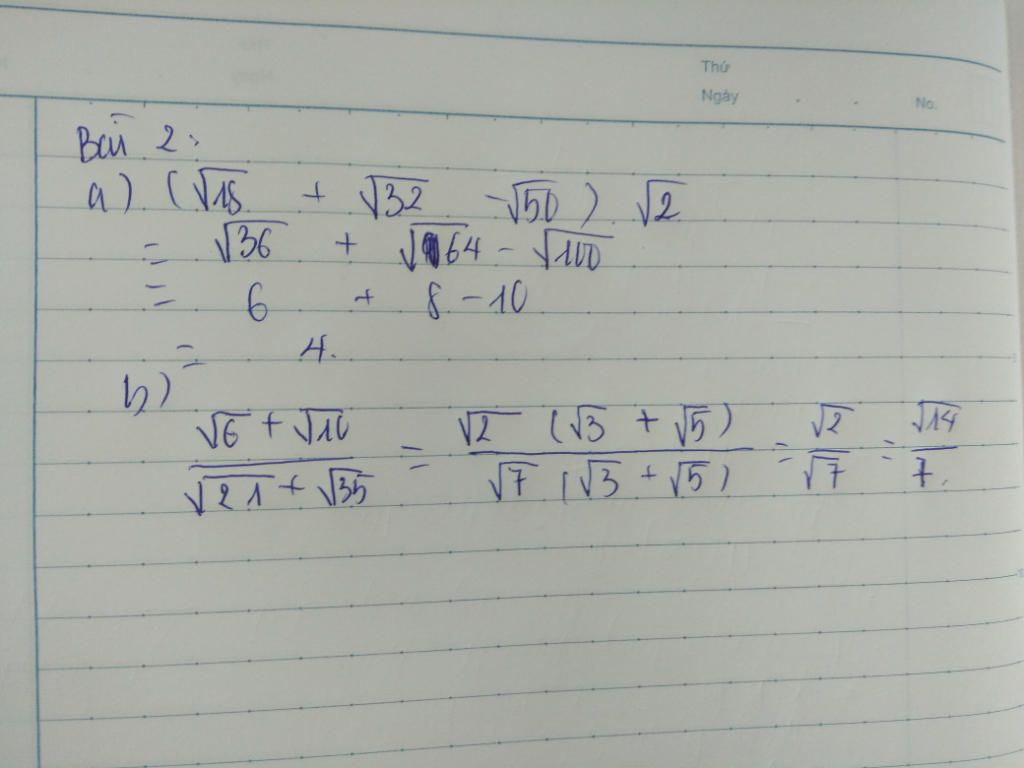 Thứ
Ngày . . No.
Bài 2:
a) (√18 + √32 - √50) . √2
= √36 + √64 - √100
= 6 + 8 - 10
= 4.
b)
(√6 + √10)/(√21 + √35) = (√2 (√3 + √5))/(√7 (√3 + √5)) = √2/√7 = √14/7.